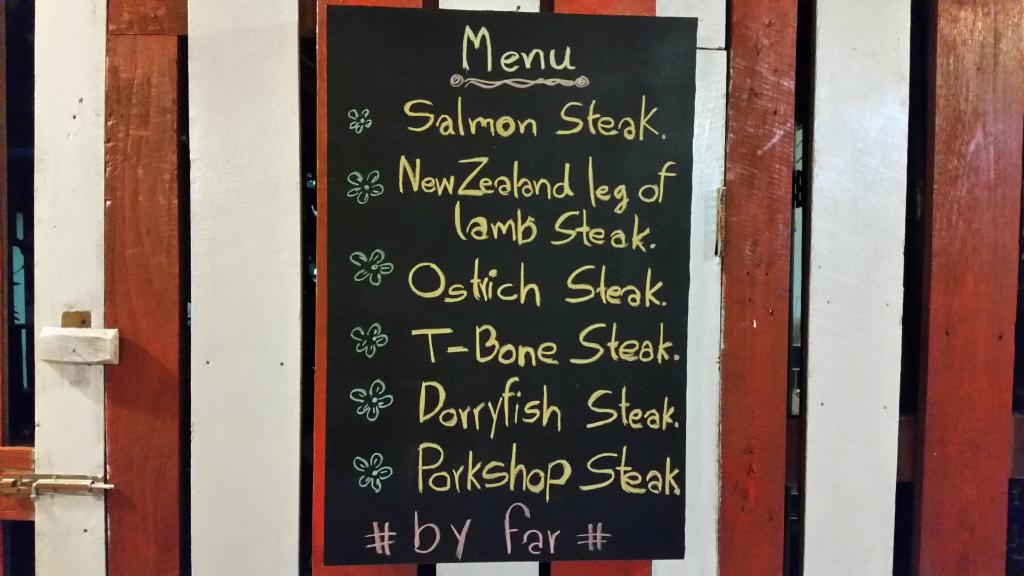 Menu
Salmon Steak.
New Zealand leg of
lamb Steak.
Ostrich Steak.
T-Bone Steak.
Dorryfish Steak.
Porkshop Steak
# by far #